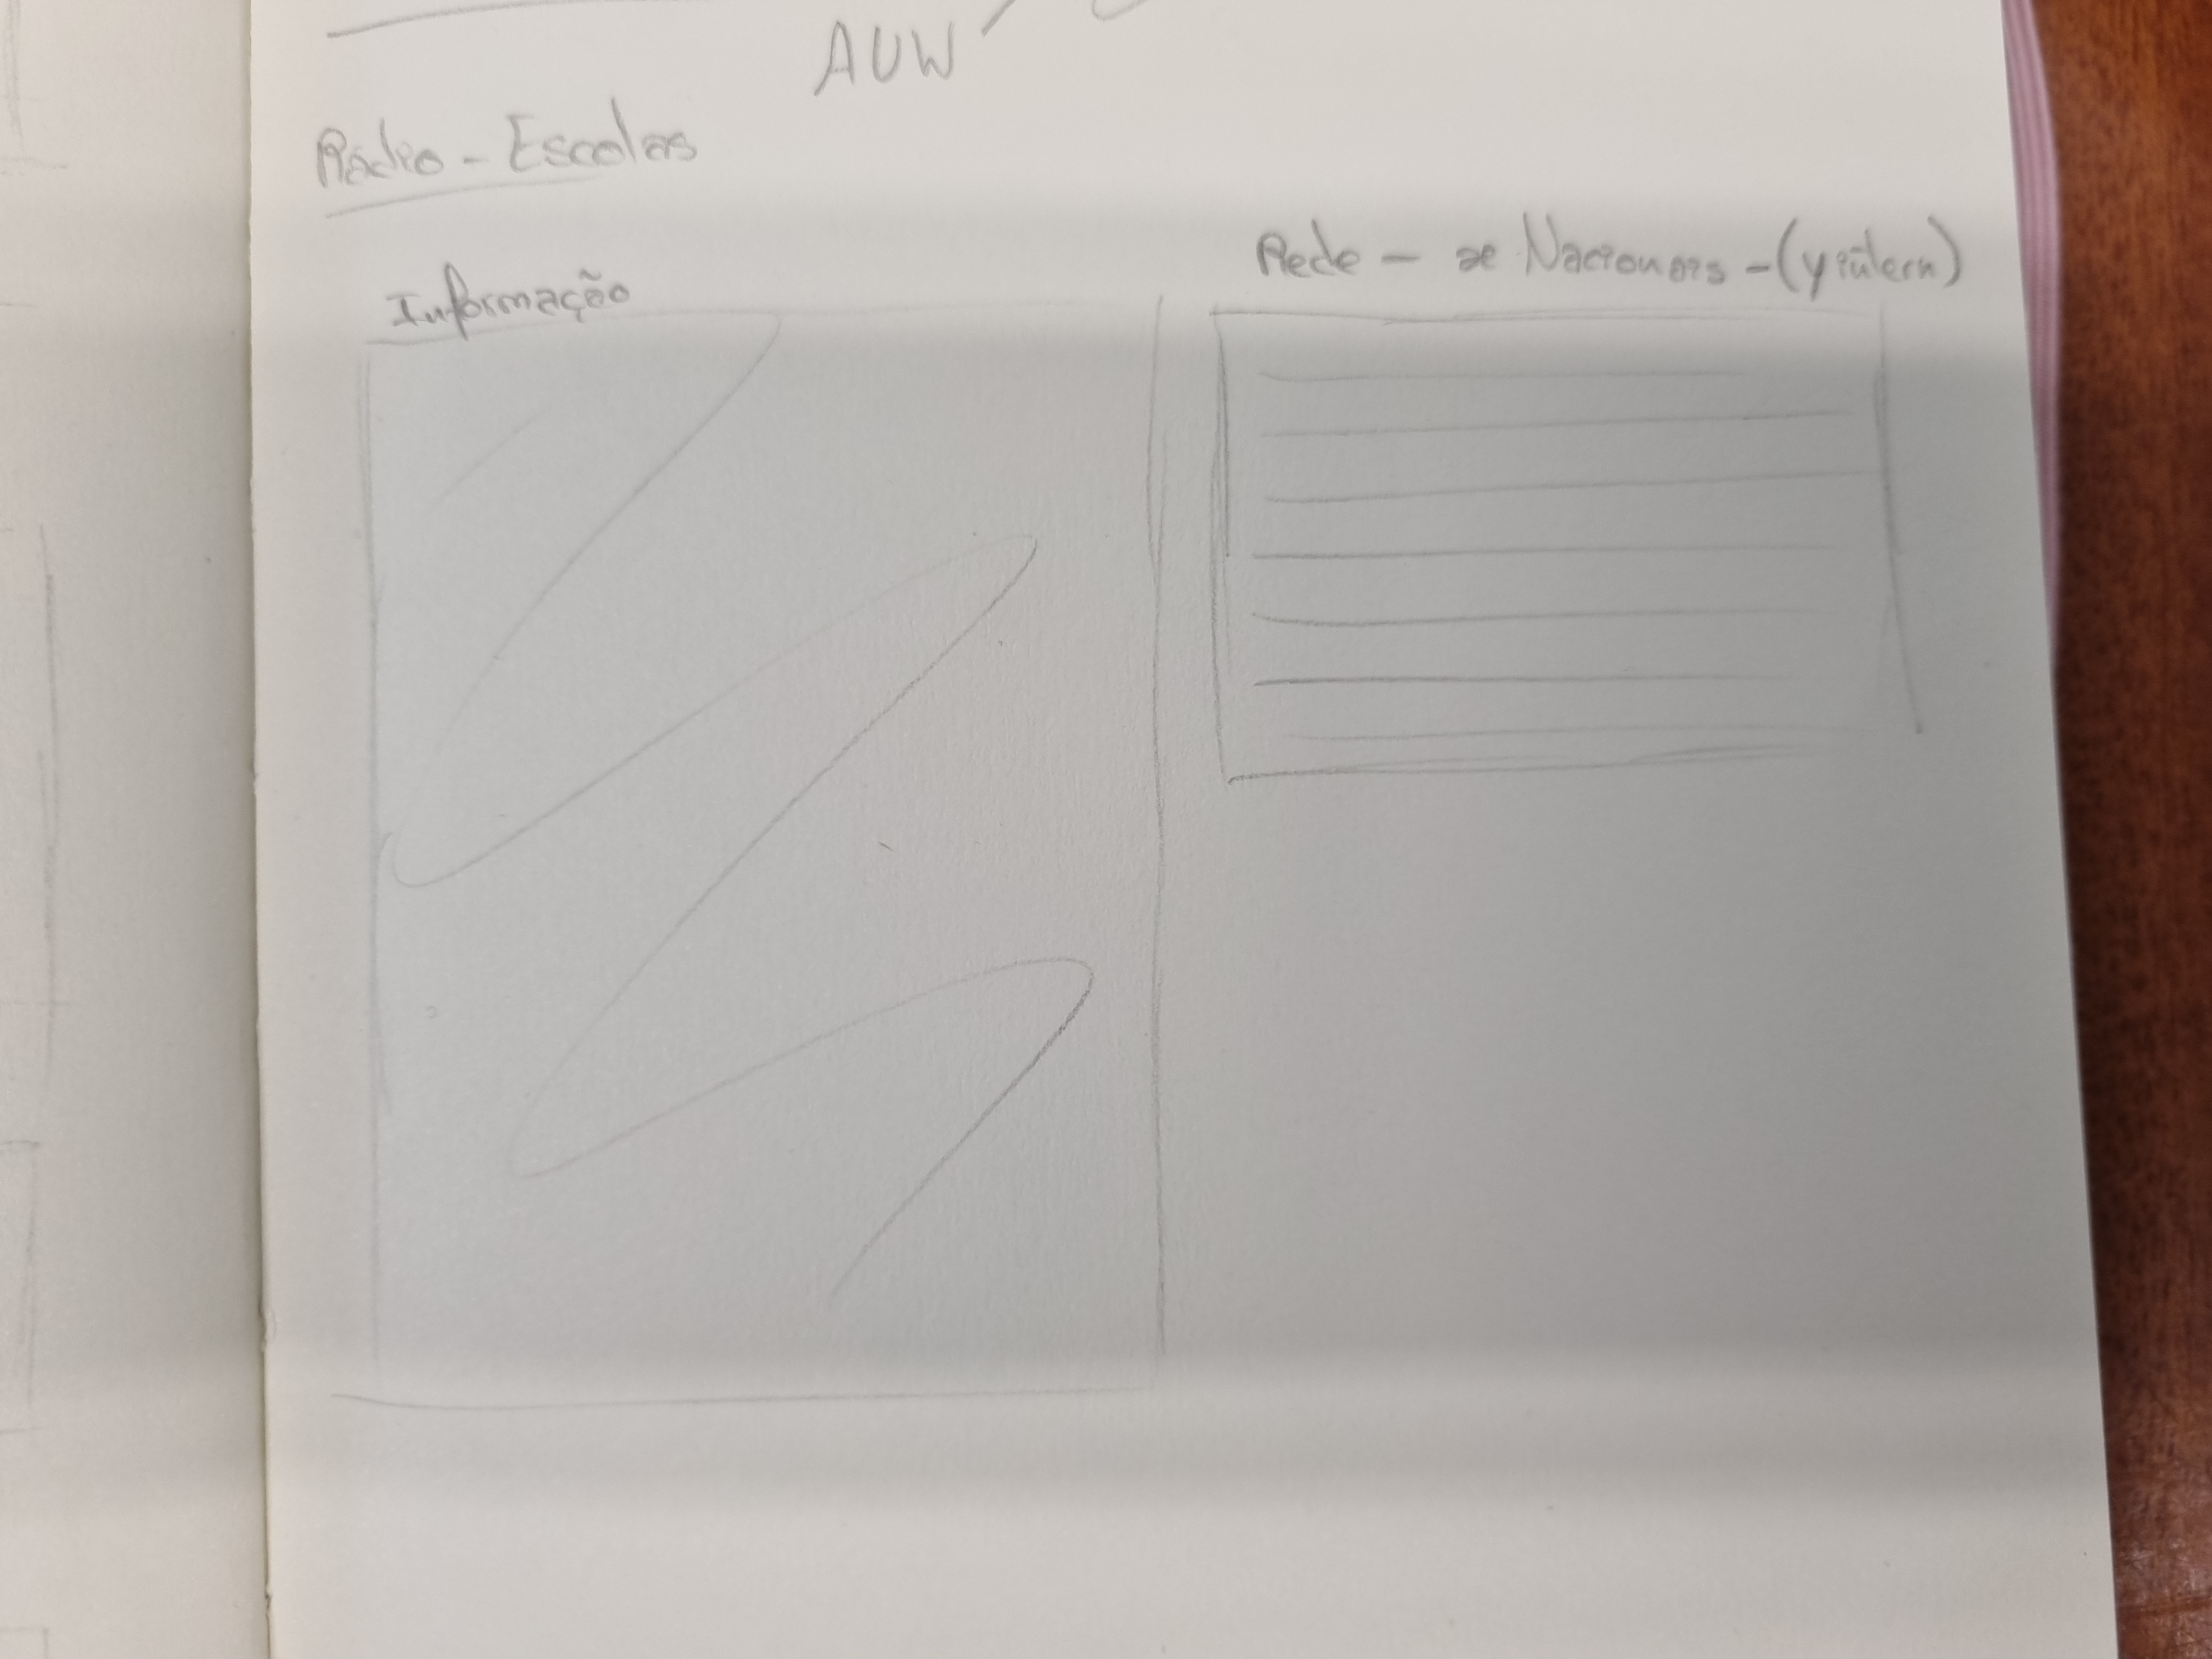 AUW
Rádio - Escolas
Informação
Rede - Nacionais - (